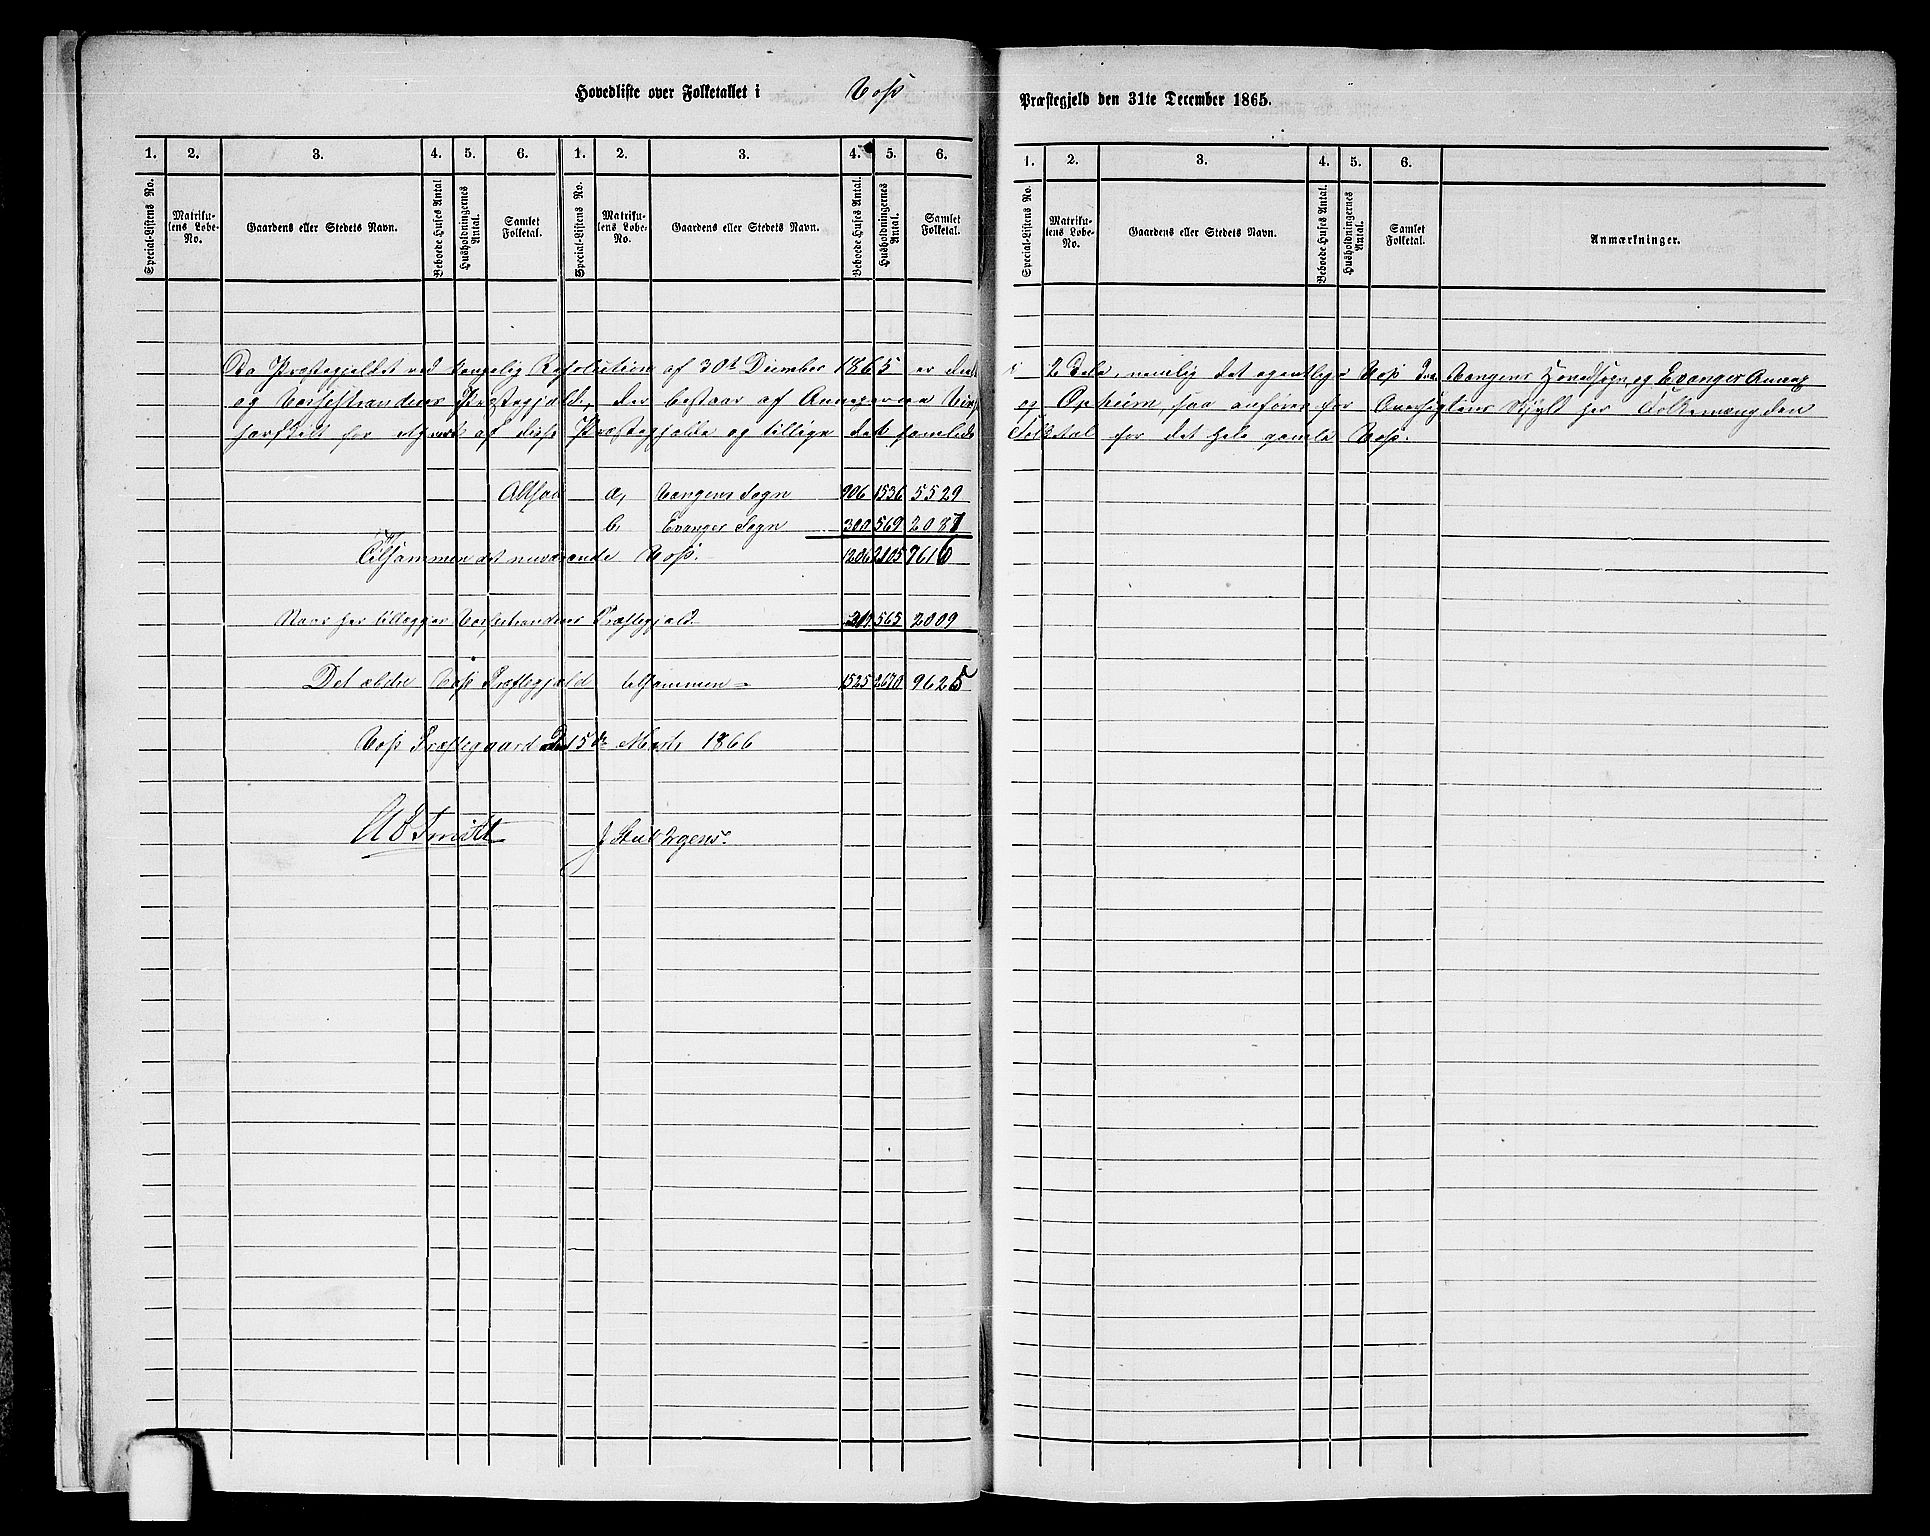 Hovedliste over Folketallet i Voss Præstegjeld den 31te December 1865.
1. 2. 3. 4. 5. 6. 1. 2. 3. 4. 5. 6. 1. 2. 3. 4. 5. 6.
Special-Listens No. Matriku-lens Løbe-No. Gaardens eller Stedets Navn. Beboede Huses Antal Husholdningernes Antal. Samlet Folketal. Special-Listens No. Matriku-lens Løbe-No. Gaardens eller Stedets Navn. Beboede Huses Antal. Husholdningernes Antal. Samlet Folketal. Special-Listens No. Matriku-lens Løbe-No. Gaardens eller Stedets Navn. Beboede Huses Antal. Husholdningernes Antal. Samlet Folketal. Anmærkninger.
Da Præstegjeldet ved Kongelig Resolution af 30te December 1865 er deelt i 2 Dele, nemlig det egentlige Voss Vangens Hovedsogn og Evanger Annex
og Vossestrandens Præstegjeld, der bestaar af Annexerne og Opheim, saa anføres for Oversigtens Skyld her Folkemængden
særskilt for af disse Præstegjelde og tillige det samlede Folketal for det hele gamle Voss.
Altsaa a, Vangens Sogn 906 1536 5529
b, Evanger Sogn 300 569 2087
Tilsammen det nuværende Voss. 1206 2105 7616
Naar her tillægges Vossestrandens Præstegjeld 565 2009
Det ældre Voss Præstegjeld tilsammen = 1525 2670 9625
Voss Præstegaard den 15de Marts 1866
A Smitt J. Stub Irgens.